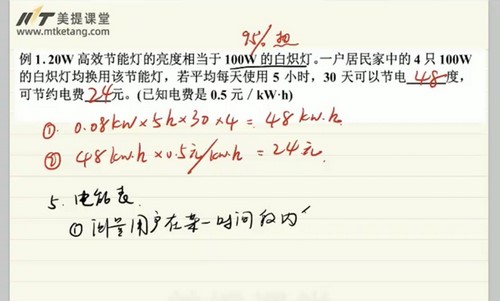 美提课堂
www.mtketang.com
95% 热
例 1. 20W 高效节能灯的亮度相当于 100W 的白炽灯。一户居民家中的 4 只 100W
的白炽灯均换用该节能灯，若平均每天使用 5 小时，30 天可以节电 48 度，
可节约电费 24 元。(已知电费是 0.5 元／kW·h)
① 0.08kW×5h×30×4=48kW.h
② 48kW.h×0.5元/kW.h=24元.
5. 电能表.
① 测量用户在某一时间段内